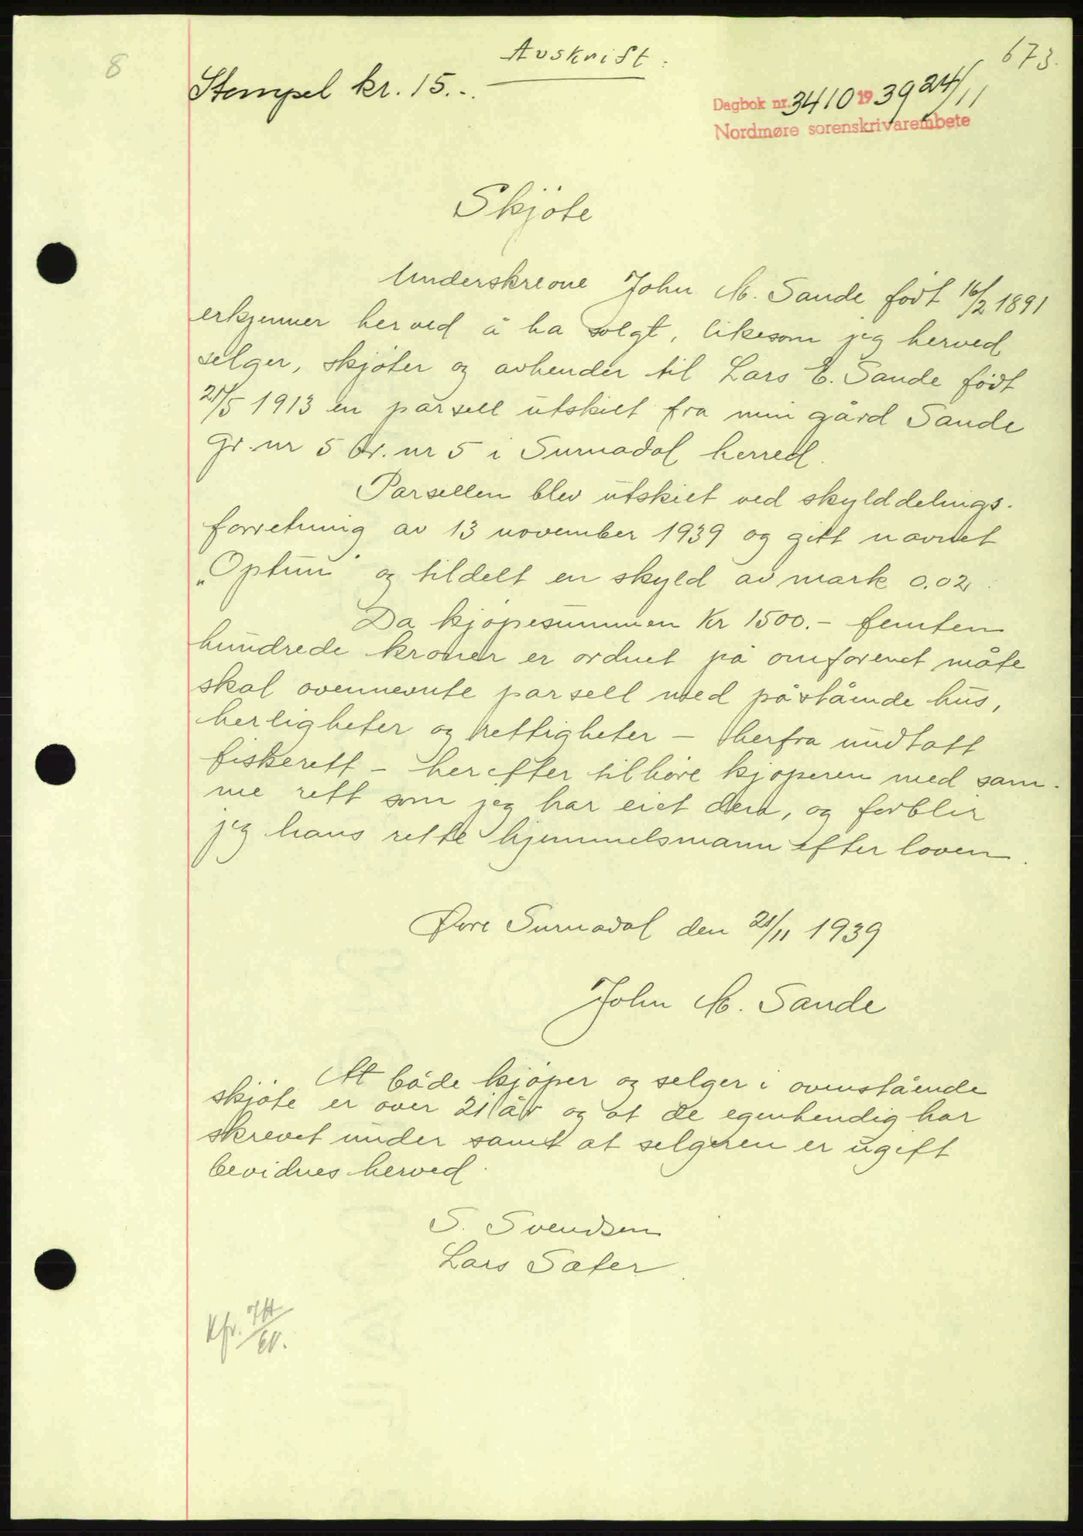 8
Avskrift.
673.
Stempel kr. 15.-.
Dagbok nr. 3410 1939 24/11
Nordmøre sorenskrivarembete
Skjöte
Underskrevne John M. Sande födt 16/2 1891
erkjenner herved å ha solgt, likesom jeg herved
selger, skjöter og avhender til Lars E. Sande födt
21/5 1913 en parsell utskilt fra min gård Sande
gr. nr 5 br. nr 5 i Surnadal herred.
Parsellen blev utskiet ved skylddelings-
forretning av 13 november 1939 og gitt navnet
„Optun" og tildelt en skyld av mark 0.02.
Da kjöpesummen Kr 1500.- femten
hundrede kroner er ordnet på omforenet måte
skal ovennevnte parsell med påstående hus,
herligheter og rettigheter - herfra undtatt
fiskerett - herefter tilhöre kjöperen med sam-
me rett som jeg har eiet den, og forblir
jeg hans rette hjemmelsmann efter loven.
Övre Surnadal den 21/11 1939
John M. Sande
At både kjöper og selger i ovenstående
skjöte er over 21 år og at de egenhendig har
skrevet under samt at selgeren er ugift
bevidnes herved.
S. Svendsen
Lars Sæter.
Kfr.